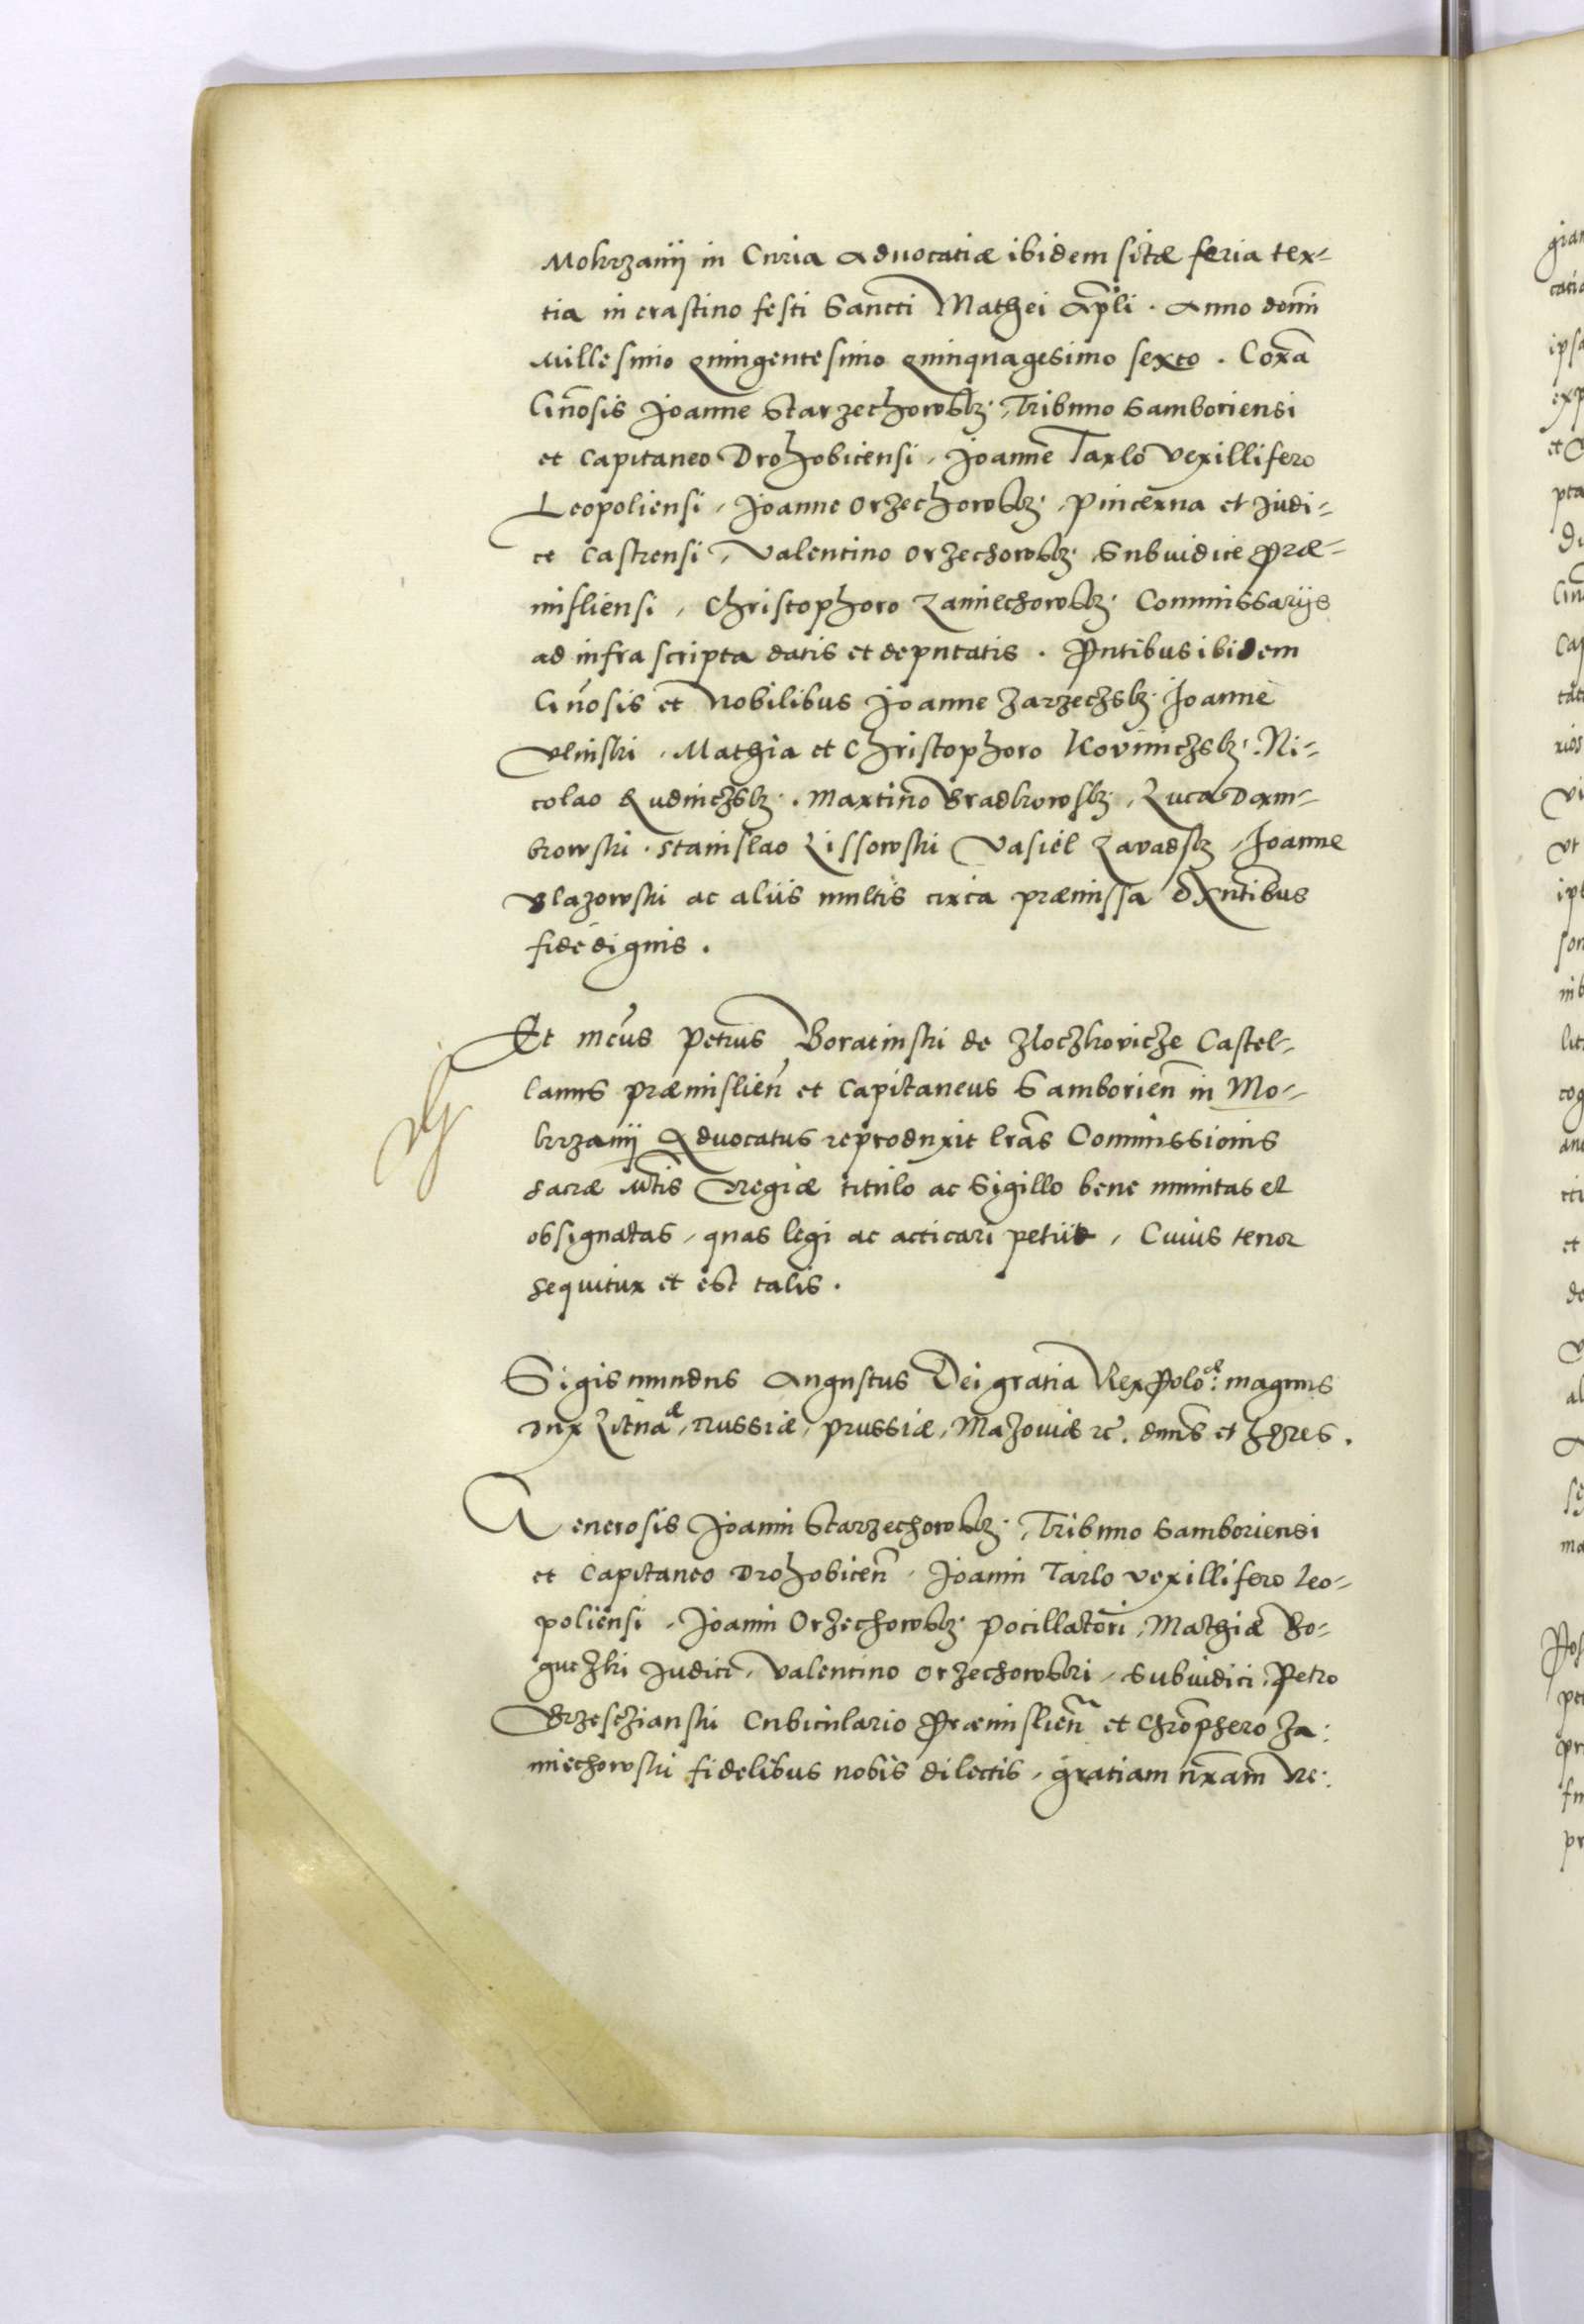 Mokrzanij in Curia Advocatiæ ibidem sitæ feria ter-
tia in crastino festi Sancti Mathei Apli. Anno domi
Millesimo quingentesimo quinquagesimo sexto. Corã
Gnosis Joanne Starzechowsky, Tribuno Samboriensi
et Capitaneo Drohobicensi, Joanne Tarlo Vexillifero
Leopoliensi, Joanne Orzechowsky, Pincerna et Judi-
ce Castrensi, Valentino Orzechowsky Subiudice Præ-
misliensi, Christophoro Zamiechowsky Commissarijs
ad infra scripta datis et deputatis. Pntibus ibidem
Gnosis et Nobilibus Joanne Zarzeczsky Joanne
Ulinski, Mathia et Christophoro Koviniczsky, Ni-
colao Rudniczsky. Martino Bradkowsky, Luca Dom-
browski. Stanislao Lissowski Vasiel Zavadsky, Joanne
Blazowski ac aliis multis circa præmissa exntibus
fide dignis.
Et mcus Petrus Boratinski de Zloczkovicze Castel-
lanus Præmislien et Capitaneus Samborien in Mo-
krzanij Advocatus reproduxit lras Commissionis
sacræ Mtis Regiæ titulo ac Sigillo bene munitas et
obsignatas, quas legi ac acticari petiit, Cuius tenor
sequitur et est talis.
Sigismundus Augustus Dei gratia Rex Poloæ: magnus
dux Lituaæ, Russiæ, Prussiæ, Mazoviæ rc. dnus et heres.
Generosis Joanni Starzechowsky, Tribuno Samboriensi
et Capitaneo Drohobicen, Joanni Tarlo vexillifero Leo-
poliensi, Joanni Orzechowsky Pocillatori, Mathiæ Bo-
guczki Judici, Valentino Orzechowski, Subiudici, Petro
Brzescziański Cubiculario Præmislien et Chrophero Za:
miechowski fidelibus nobis dilectis, gratiam nram Re: